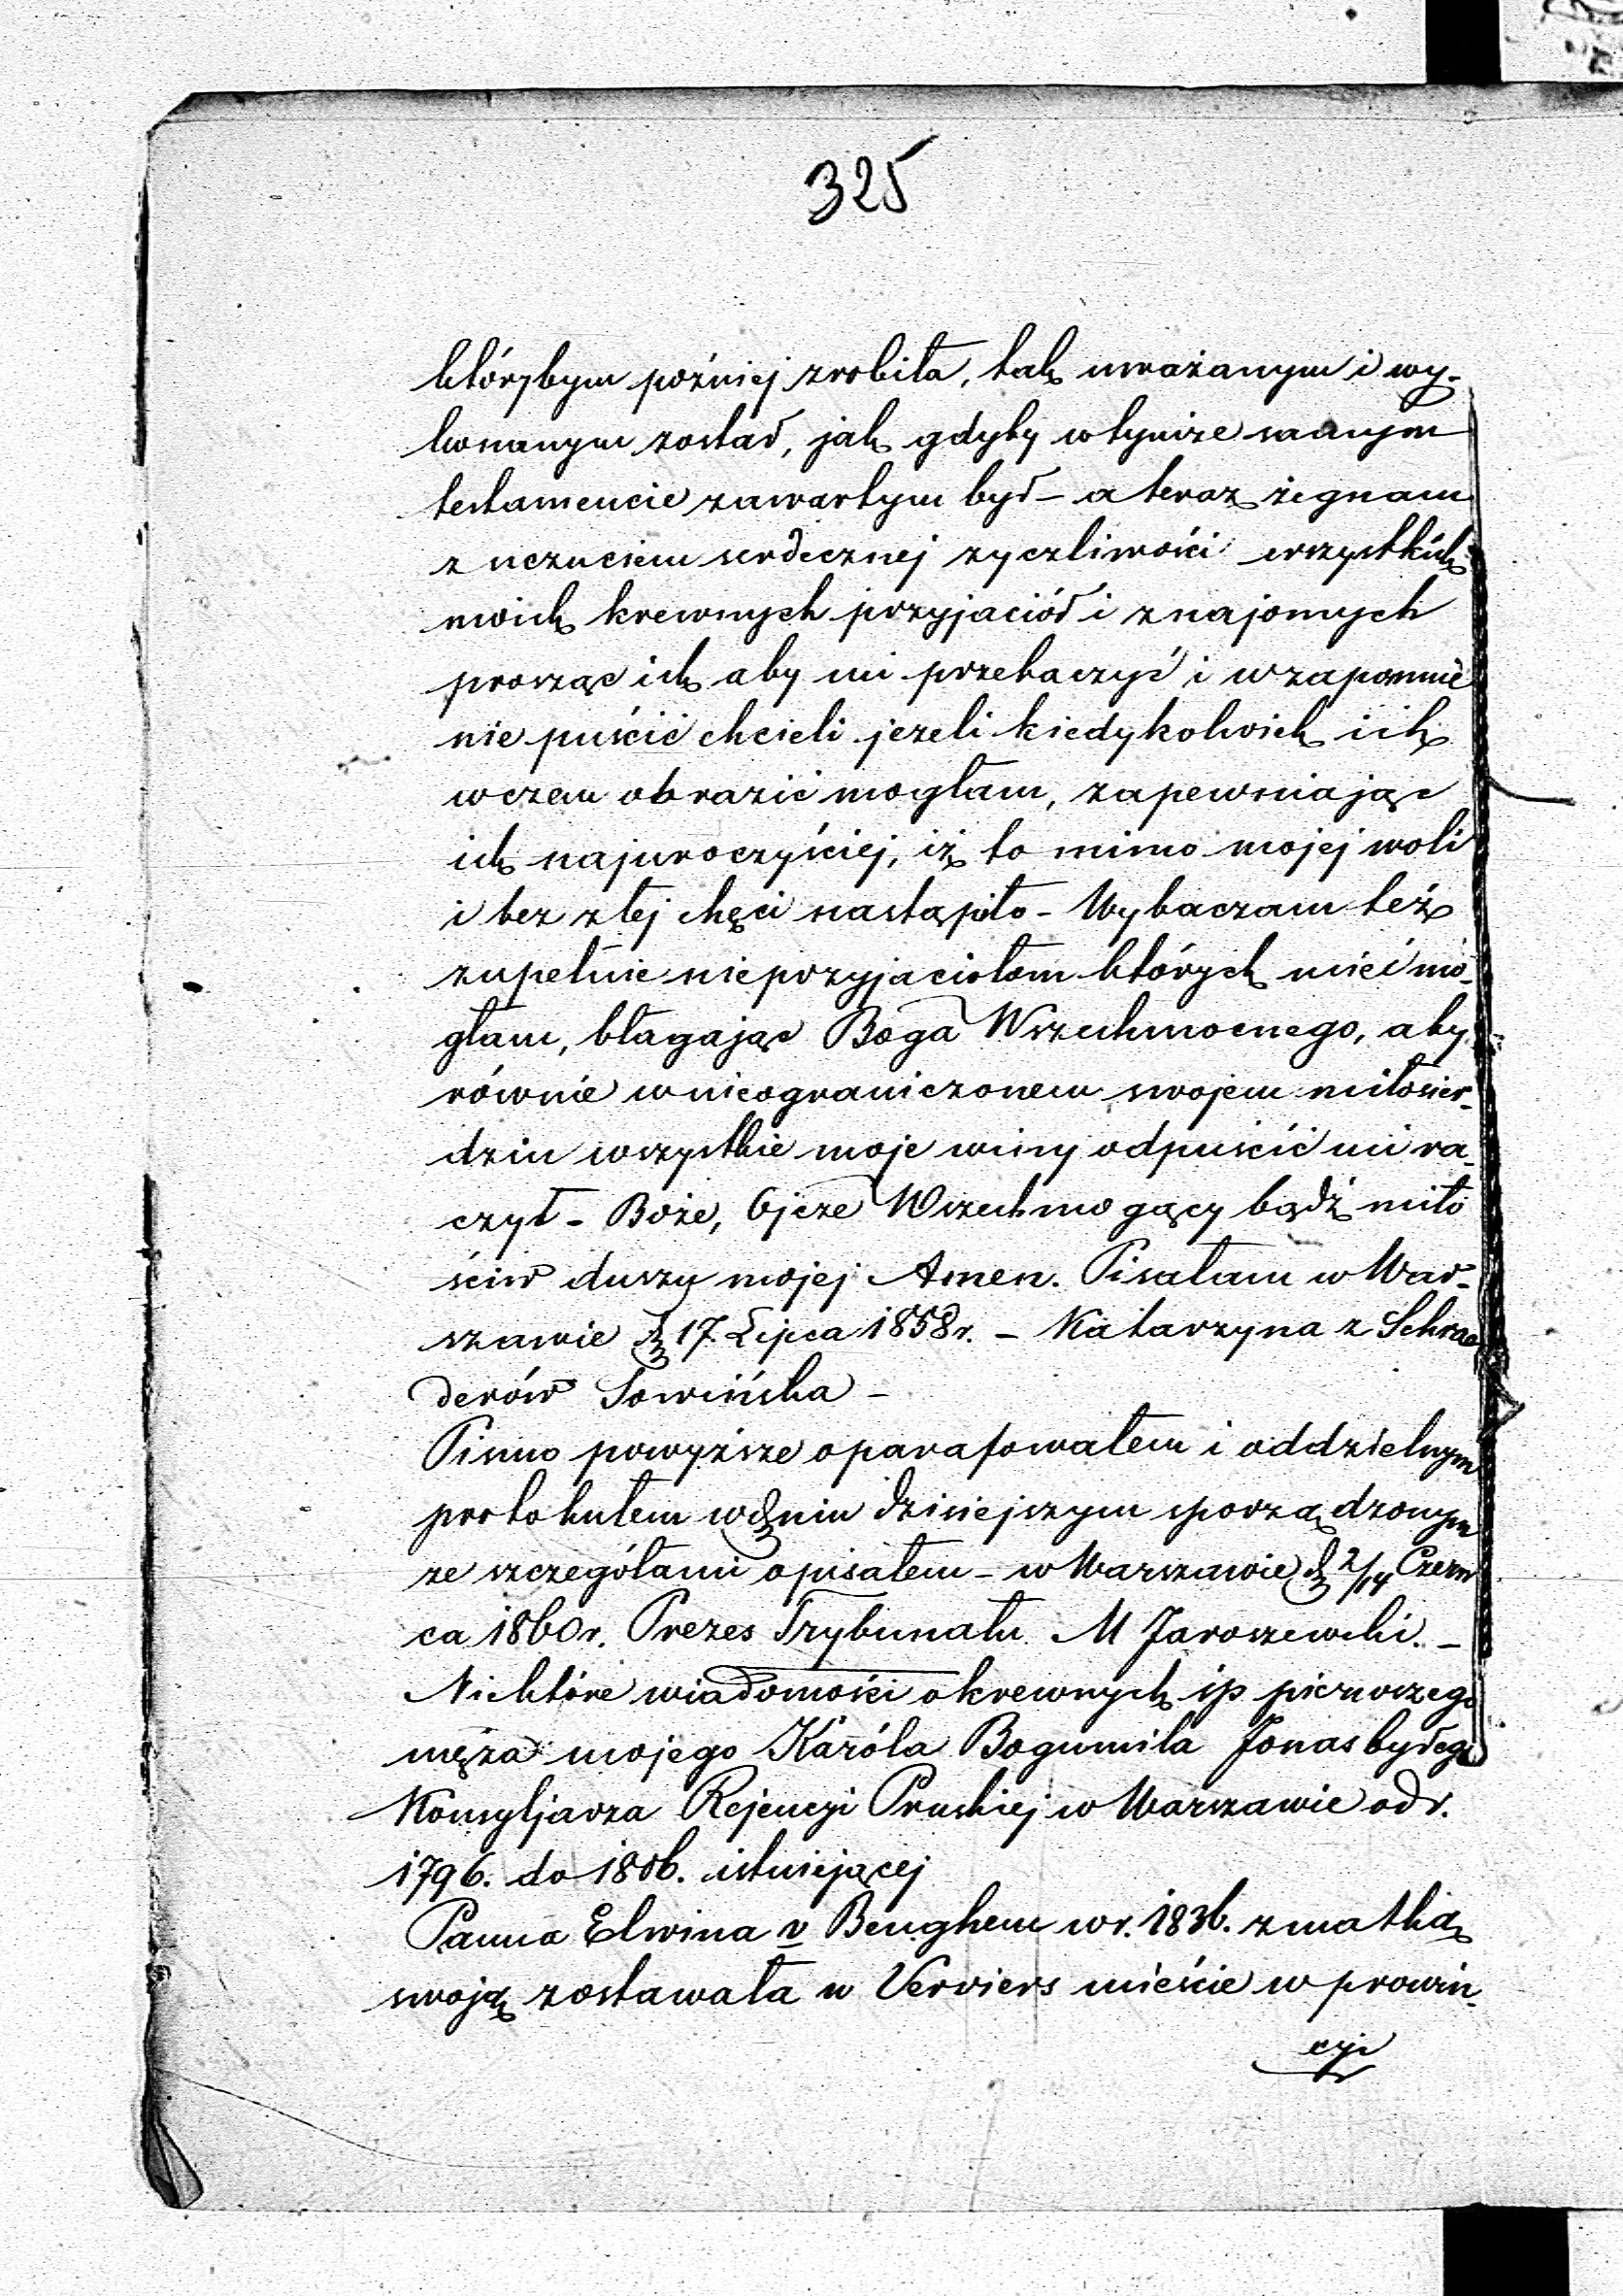 325
którybym później zrobiła, tak uważanym i wy-
konanym został, jak gdyby w tymże samym
testamencie zawartym był – a teraz żegnam
z uczuciem serdecznej zyczliwości wszystkich
moich krewnych przyjaciół i znajomych
prosząc ich aby mi przebaczyć i w zapomnie
nie puścić chcieli jezeli kiedykolwiek ich
w czem obrazić mogłam, zapewniając
ich najuroczyściej, iż to mimo mojej woli
i bez złej chęci nastąpiło – Wybaczam też
zupełnie nieprzyjaciołom których mieć mo-
głam, błagając Boga Wszechmocnego, aby
równie w nieograniczonem swojem miłosier-
dziu wszystkie moje winy odpuścić mi ra-
czył – Boże, Ojcze Wszechmogący bądź miło
ściw duszy mojej Amen. Pisałam w War-
szawie d. 17. Lipca 1858 r. – Katarzyna z Schrae
derów Sowińska –
Pismo powyższe oparafowałem i oddzielnym
protokułem w dniu dzisiejszym sporządzonym
ze szczegółami opisałem – w Warszawie d. 2/14 Czerw
ca 1860 r. Prezes Trybunału M Jaroszewski. –
Niektóre wiadomości o krewnych śp pierwszego
męża mojego Karóla Bogumiła Jonas byłego
Konsyljarza Rejencyi Pruskiej w Warszawie od r.
1796. do 1806. istniejącej
Panna Elwina v Benghem w r. 1836. z matką
swoją zostawała w Verviers mieście w prowin-
cyi